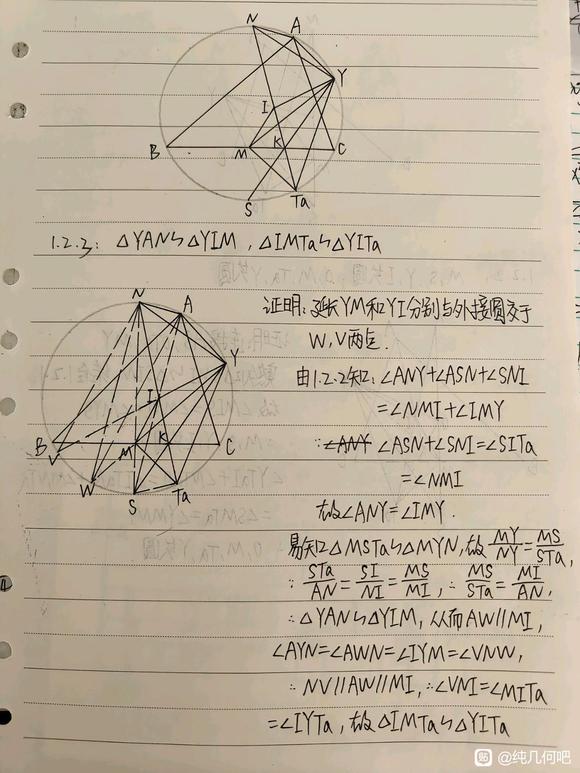 N
A
Y
I
B
M
K
C
S
Ta
1.2.3: △YAN∽△YIM, △IMTa∽△YITa
N
A
Y
I
B
V
M
K
C
W
S
Ta
证明:延长YM和YI分别与外接圆交于
W,V两点.
由1.2.2知:∠ANY+∠ASN+∠SNI
=∠NMI+∠IMY
∵∠ANY ∠ASN+∠SNI=∠SITa
=∠NMI
故∠ANY=∠IMY.
易知△MSTa∽△MYN,故MY/NY=MS/STa
∵STa/AN=SI/NI=MS/MI,∴MS/STa=MI/AN,
∴△YAN∽△YIM,从而AW∥MI,
∠AYN=∠AWN=∠IYM=∠VNW,
∴NV∥AW∥MI,∴∠VNI=∠MITa
=∠IYTa,故△IMTa∽△YITa
贴 @纯几何吧